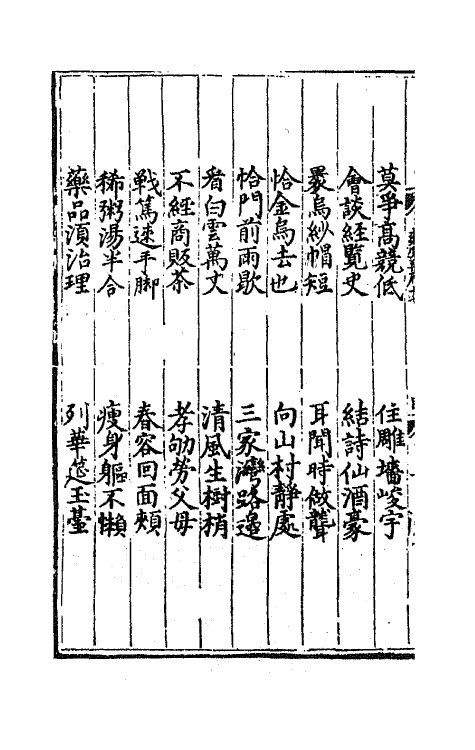 莫爭高競低　住雕墻峻宇
會談經覽史　結詩仙酒豪
裊烏紗帽短　耳聞時做聾
恰金烏去也　向山村靜處
恰門前雨歇　三家灣路邊
看白雲萬丈　清風生樹梢
不經商販茶　孝劬勞父母
戰篤速手脚　春容回面頰
稀粥湯半合　瘦身軀不懶
藥品湏治理　列華筵玉臺